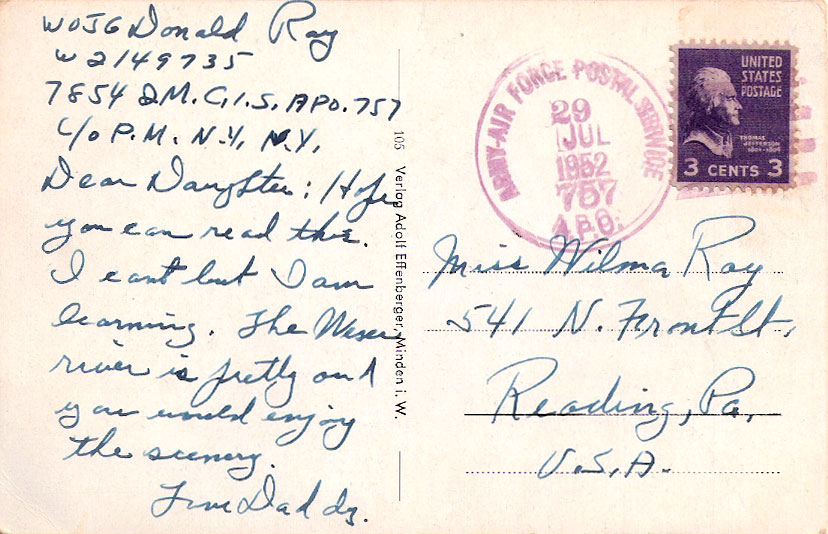 WOJG Donald Ray
W2149735
7854 QM.C.I.S. APO. 757
C/o P.M. N.Y. N.Y.
Dear Daughter: Hope
you can read this.
I can't but I am
learning. The Weser
river is pretty and
you would enjoy
the scenery.
Love Daddy.
105 Verlag Adolf Effenberger, Minden i. W.
ARMY-AIR FORCE POSTAL SERVICE
29
JUL
1952
757
A.P.O.
UNITED
STATES
POSTAGE
THOMAS
JEFFERSON
1801-1809
3 CENTS 3
Miss Wilma Ray
541 N. Front St.
Reading, Pa.
U.S.A.